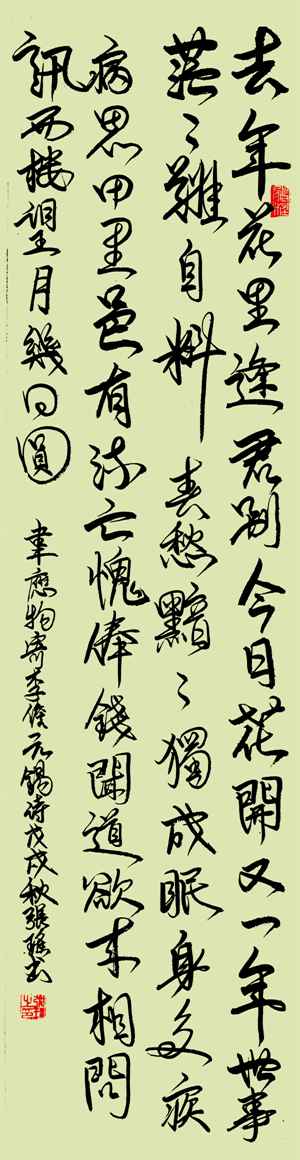 去年花里逢君別今日花開又一年世事
茫々難自料春愁黯々獨成眠身多疾
病思田里邑有流亡愧俸錢聞道欲来相問
訊西樓望月幾回圓
韋應物寄李儋元錫詩戊戌秋張書